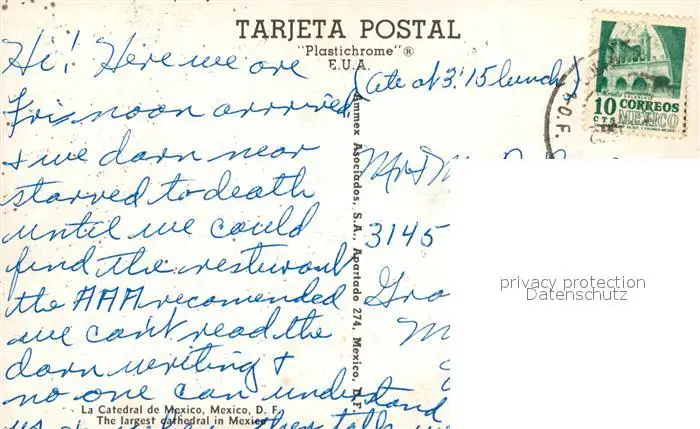 TARJETA POSTAL
"Plastichrome"®
E.U.A.
Hi! Here we are
(ate at 3:15 lunch)
Fri noon arrived
& we darn near
starved to death
until we could
find the resturant
the AAA recomended
we can't read the
darn writing &
no one can understand
us
Mr & M
3145
Gra
M
Ammex Asociados, S.A., Apartado 274, Mexico, D.F.
La Catedral de Mexico, Mexico, D. F.
The largest cathedral in Mexico
10 CORREOS
CTS MEXICO
D.F.
privacy protection
Datenschutz